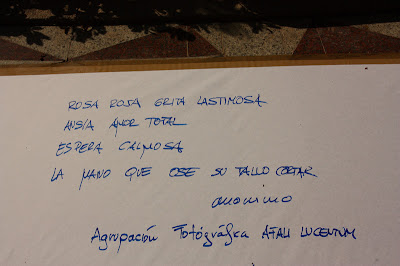 ROSA ROJA GRITA LASTIMOSA
ANSIA AMOR TOTAL
ESPERA CALMOSA
LA MANO QUE OSE SU TALLO CORTAR
anonimo
Agrupación Fotógráfica AFALI LUCENTUM